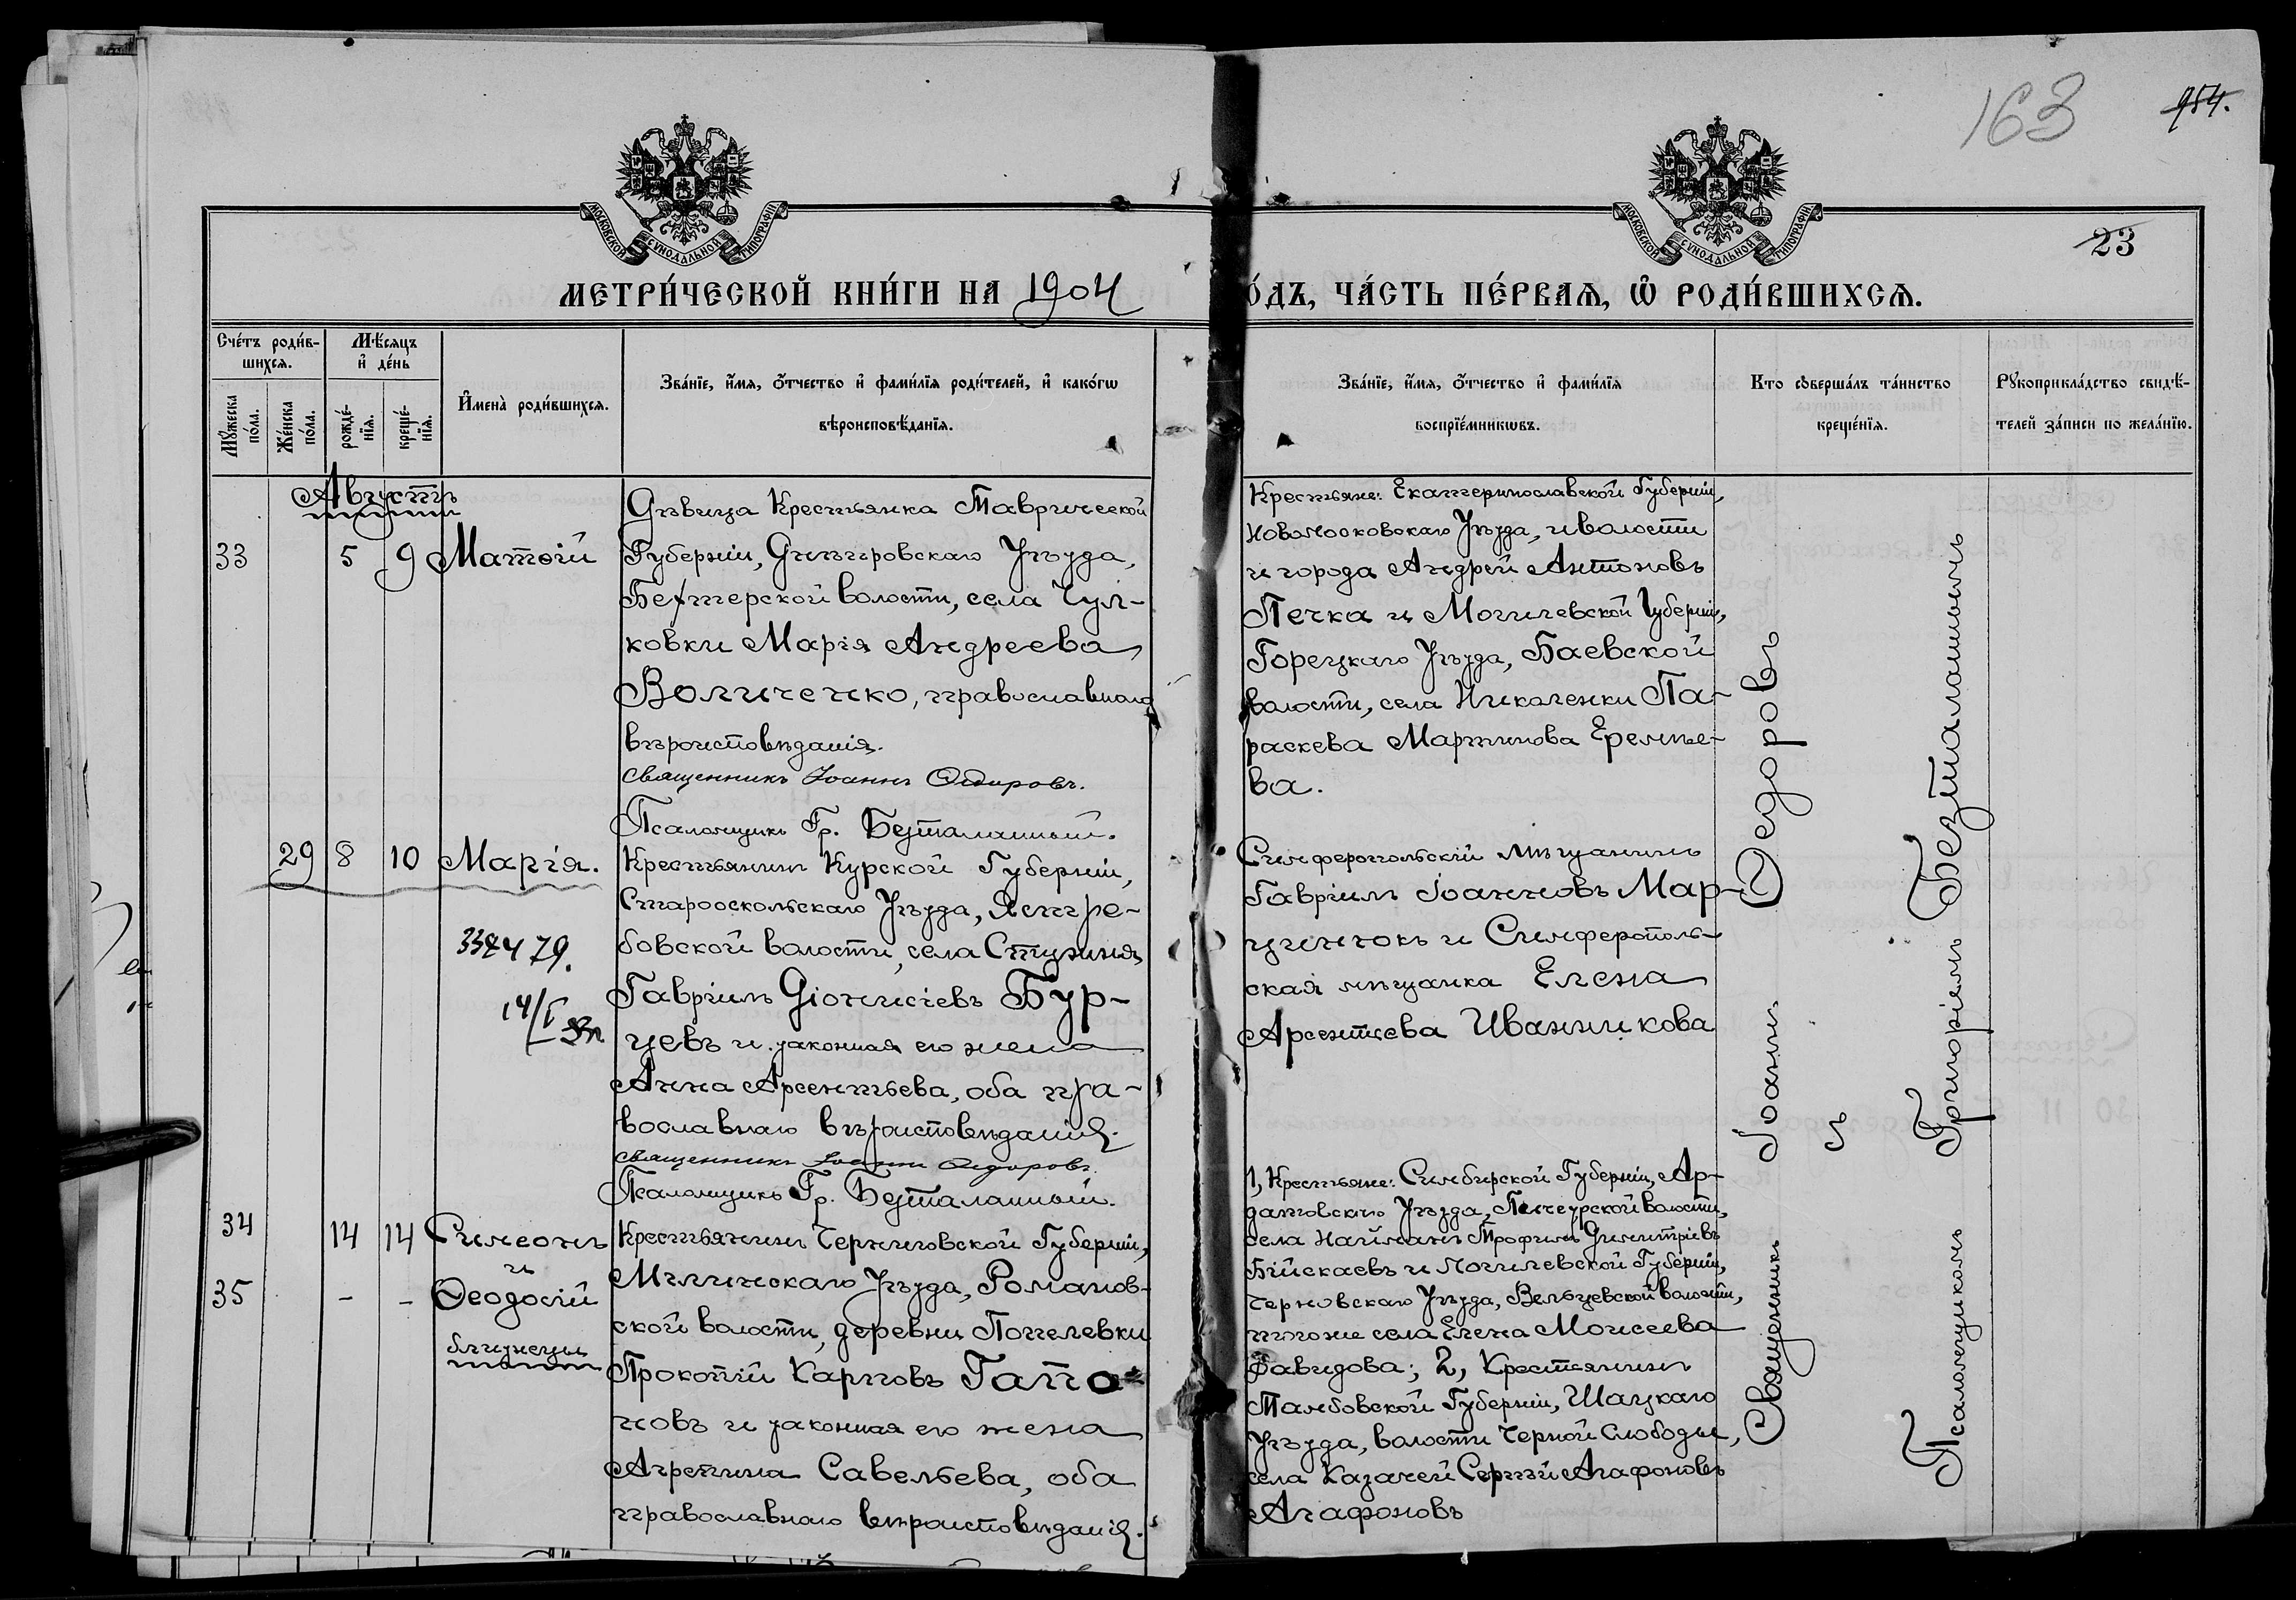 163
954.
МОСКОВСКОЙ СѴНОДАЛЬНОЙ ТИПОГРАФІИ
МОСКОВСКОЙ СѴНОДАЛЬНОЙ ТИПОГРАФІИ
23
МЕТРИ́ЧЕСКОЙ КНИ́ГИ НА 1904
О́ДЪ, ЧА́СТЬ ПЕ́РВАѦ, Ѡ҆ РОДИ́ВШИХСѦ.
Сче́тъ роди́в-
шихсѧ.
Мѹ́жеска по́ла.
Же́нска по́ла.
Мѣ́сѧцъ
и҆ де́нь
рожде́-
нїѧ.
креще́-
нїѧ.
И҆мена̀ роди́вшихсѧ.
Зва́нїе, и҆́мѧ, ѻ҆́тчество и҆ фами́лїѧ роди́телей, и҆ како́гѡ
вѣроисповѣ́данїѧ.
Зва́нїе, и҆́мѧ, ѻ҆́тчество и҆ фами́лїѧ
воспрїе́мникѡвъ.
Кто соверша́лъ та́инство
креще́нїѧ.
Рѹкоприкла́дство свидѣ́-
телей за́писи по жела́нїю.
Августъ
33 5 9 Матѳій
Дѣвица Крестьянка Таврической
Губерніи, Днѣпровскаго Уѣзда,
Бехтерской волости, села Чул-
ковки Марія Андреева
Величенко, православнаго
вѣроисповѣданія.
Священникъ Іоаннъ Ѳедоровъ.
Псаломщикъ Гр. Безталанный.
Крестьяне: Екатеринославской Губерніи,
Новомосковскаго Уѣзда, и волости
и города Андрей Антоновъ
Печка и Могилевской Губерніи,
Горецкаго Уѣзда, Баевской
волости, села Николенки Па-
раскева Мартинова Еремѣе-
ва.
29 8 10 Марія.
33479.
14/I
Крестьянинъ Курской Губерніи,
Старооскольскаго Уѣзда, Ястре-
бовской волости, села
Гавріилъ Діонисіевъ Бур-
цевъ и законная его жена
Анна Арсентьева, оба пра-
вославнаго вѣроисповѣданія.
Священникъ Іоаннъ Ѳедоровъ.
Псаломщикъ Гр. Безталанный.
Симферопольскій мѣщанинъ
Гавріилъ Іоанновъ Мар-
цинюкъ и Симферополь-
ская мѣщанка Елена
Арсентьева Иванникова
34 14 14 Симеонъ
и
35 - - Ѳеодосій
близнецы
Крестьянинъ Черниговской Губерніи,
Мглинскаго Уѣзда, Романов-
ской волости, деревни Попелевки
Прокопій Карповъ Гапо-
новъ и законная его жена
Агрепина Савельева, оба
православнаго вѣроисповѣданія.
1, Крестьяне: Симбирской Губерніи, Ар-
датовскаго Уѣзда, волости,
села Найманъ Трофимъ Димитріевъ
Бійскаевъ и Могилевской Губерніи,
Уѣзда, волости,
того же села Елена Моисеева
Давидова; 2, Крестьянинъ
Тамбовской Губерніи, Шацкаго
Уѣзда, волости Черной Слободы,
села Казачей Сергѣй Агафоновъ
Агафоновъ
Священникъ Іоаннъ Ѳедоровъ
съ
Псаломщикомъ Григоріемъ Безталаннымъ